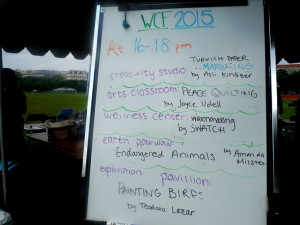 WCF 2015
At 16-18 pm
TURKISH PAPER
creativity studio: MARBLING
by Asli
arts classroom: PEACE QUILTING
by Joyce Udell
wellness center: watchmaking
by SWATCH
earth powwow:
Endangered Animals by Amanda
exploration pavilion:
PAINTING BIRDS
by Teodora Lazar